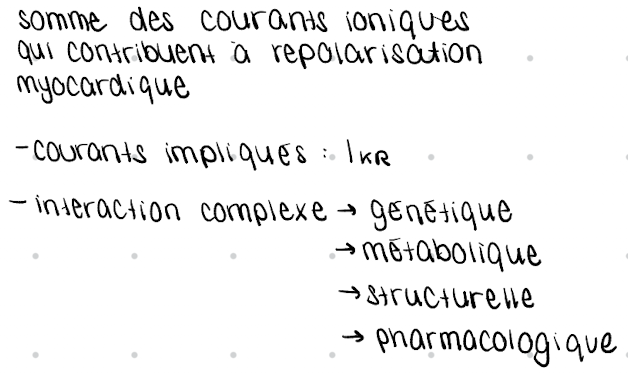 somme des courants ioniques
qui contribuent à repolarisation
myocardique
- courants impliqués : IKR
- interaction complexe → génétique
→ métabolique
→ structurelle
→ pharmacologique